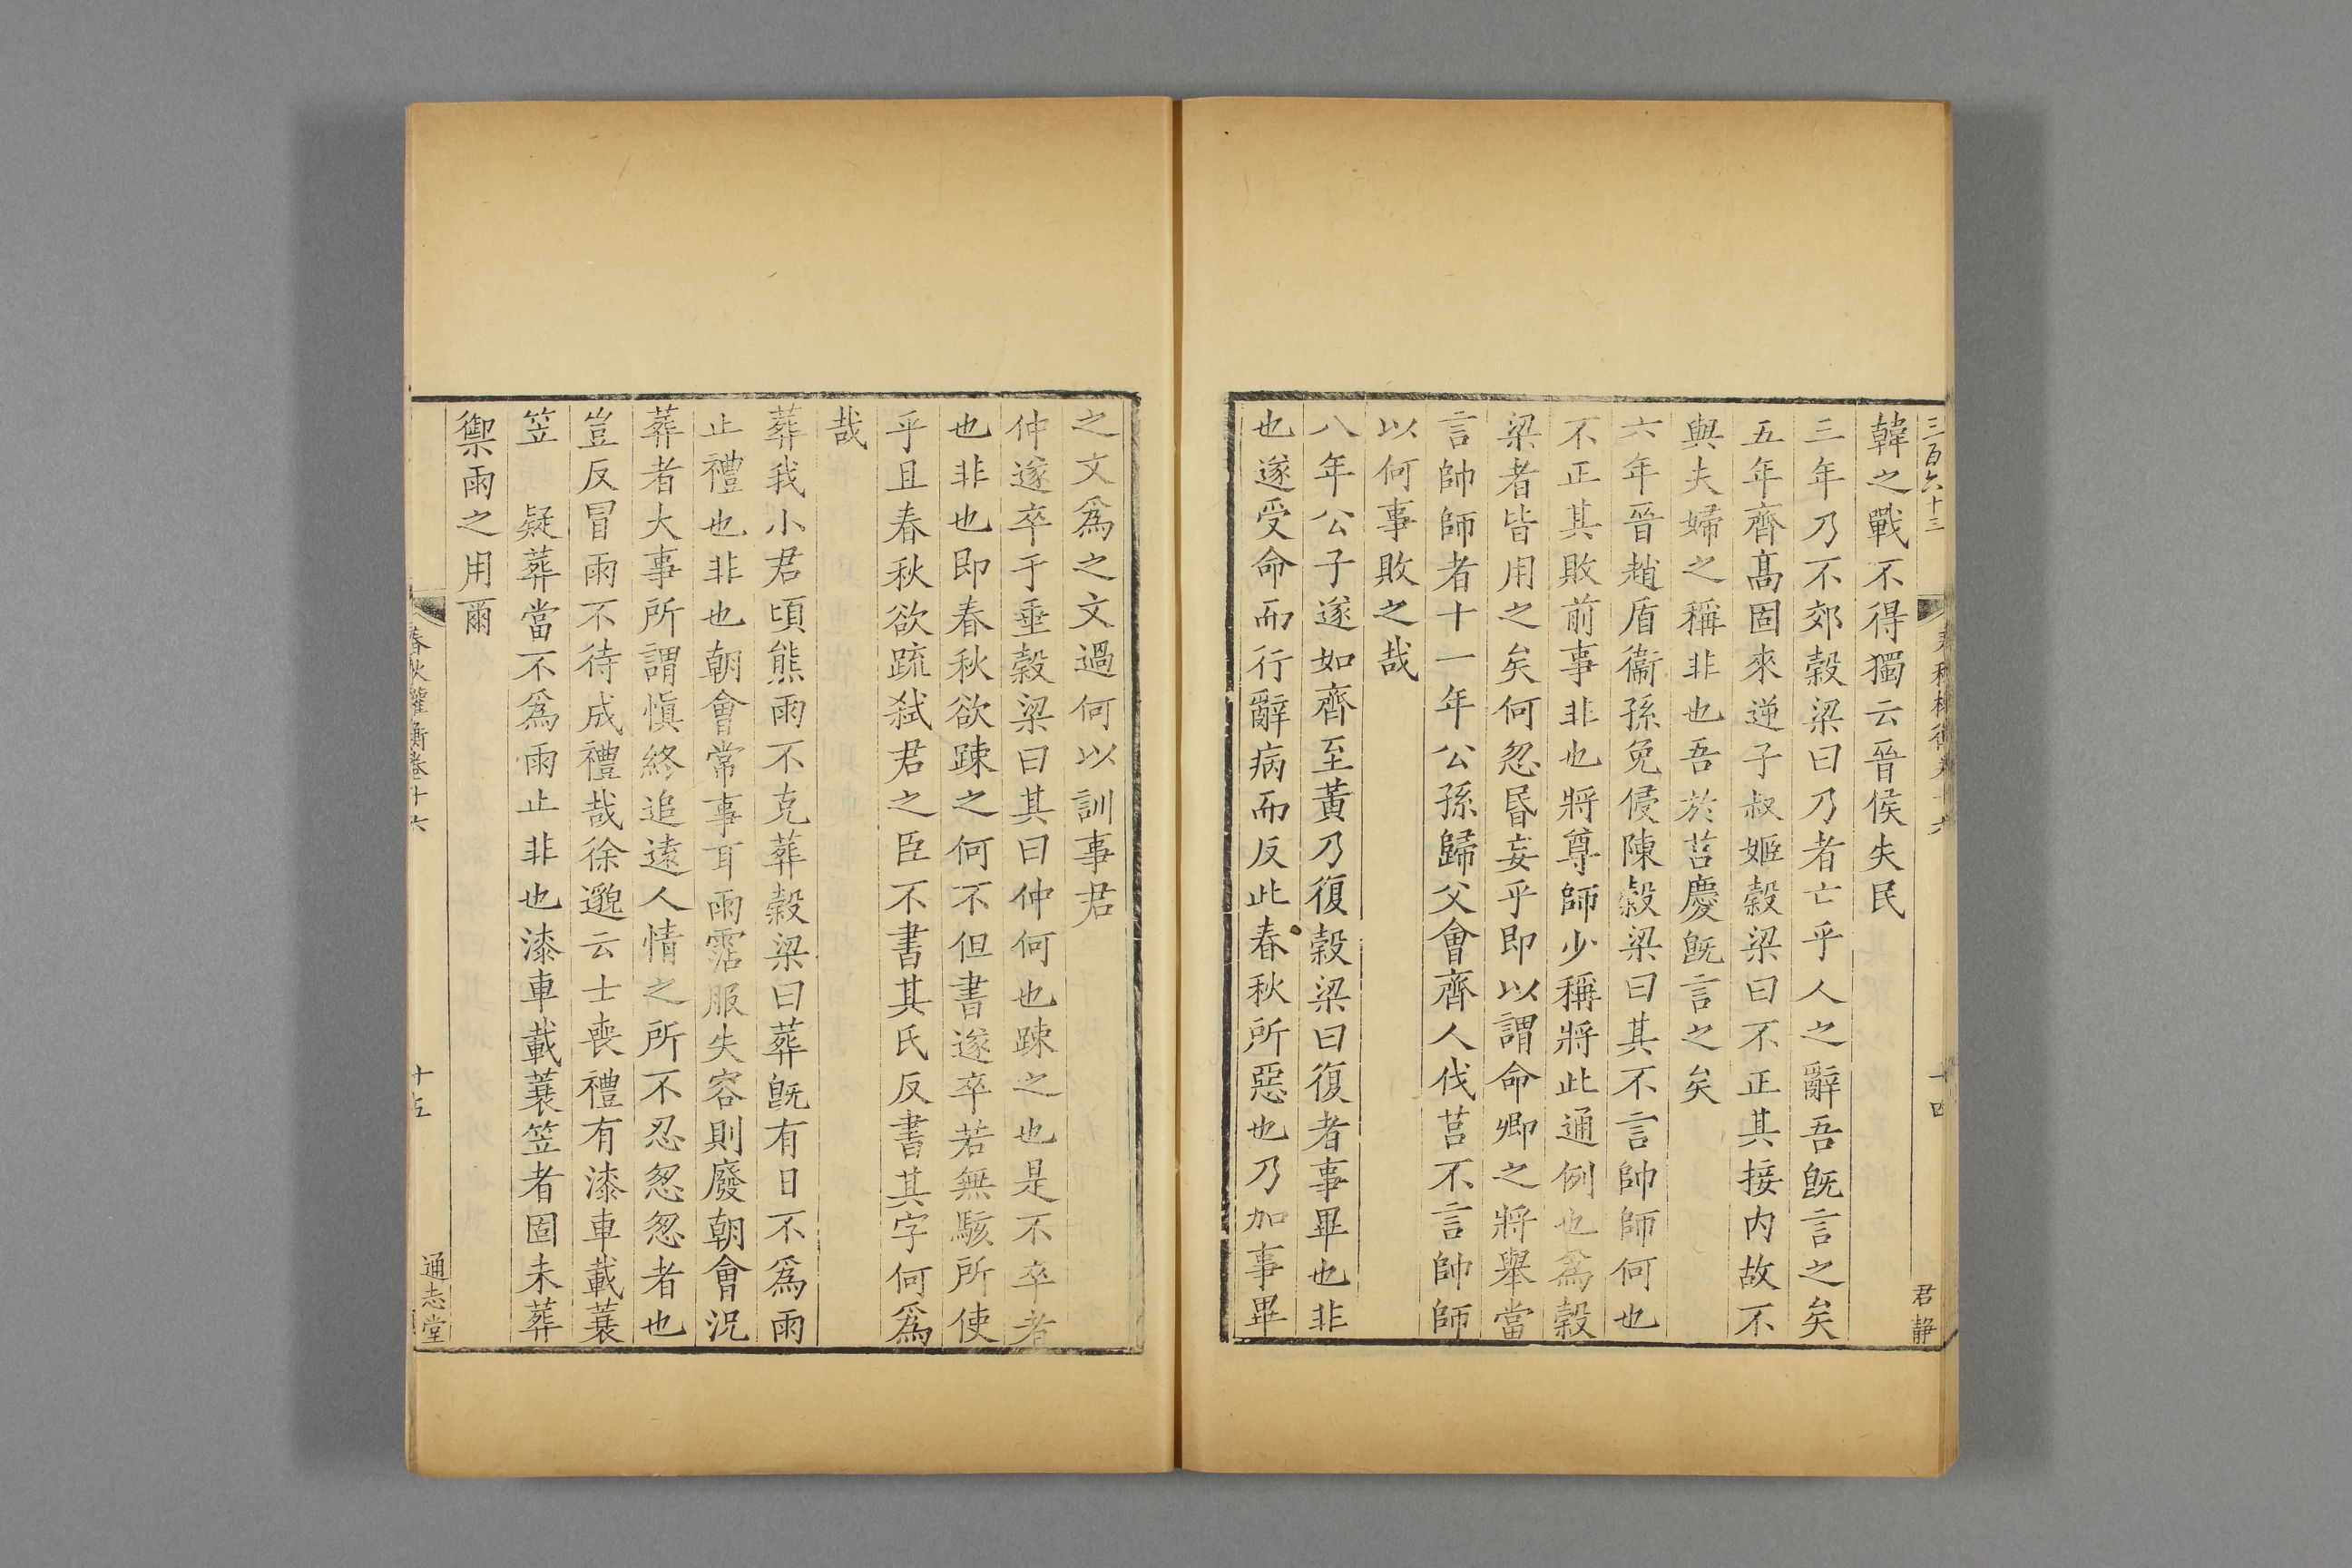 三百六十三
十四
君靜
韓之戰不得獨云晉侯失民
三年乃不郊穀梁曰乃者亡乎人之辭吾旣言之矣
五年齊髙固來逆子叔姬穀梁曰不正其接内故不
與夫婦之稱非也吾於莒慶旣言之矣
六年晉趙盾衞孫免侵陳穀梁曰其不言帥師何也
不正其敗前事非也將尊師少稱將此通例也爲穀
梁者皆用之矣何忽昬妄乎即以謂命卿之將舉當
言帥師者十一年公孫歸父會齊人伐莒不言帥師
以何事敗之哉
八年公子遂如齊至黃乃復穀梁曰復者事畢也非
也遂受命而行辭病而反此春秋所惡也乃加事畢
之文爲之文過何以訓事君
仲遂卒于垂穀梁曰其曰仲何也踈之也是不卒者
也非也即春秋欲踈之何不但書遂卒若無駭所使
乎且春秋欲疏弑君之臣不書其氏反書其字何爲
哉
葬我小君頃熊雨不克葬穀梁曰葬旣有日不爲雨
止禮也非也朝會常事耳雨霑服失容則廢朝會況
葬者大事所謂愼終追逺人情之所不忍怱怱者也
豈反冒雨不待成禮哉徐邈云士喪禮有漆車載蓑
笠　疑葬當不爲雨止非也漆車載蓑笠者固未葬
禦雨之用爾
春秋權衡卷十六
十五
通志堂